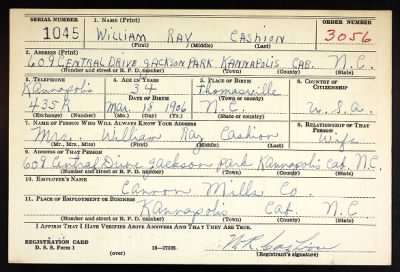 SERIAL NUMBER 1. NAME (Print) ORDER NUMBER
1045 WILLIAM RAY CASHION 3056
(First) (Middle) (Last)
2. ADDRESS (Print)
609 CENTRAL DRIVE JACKSON PARK KANNAPOLIS CAB. N.C.
(Number and street or R. F. D. number) (Town) (County) (State)
3. TELEPHONE 4. AGE IN YEARS 5. PLACE OF BIRTH 6. COUNTRY OF CITIZENSHIP
Kannapolis 34 Thomasville
DATE OF BIRTH (Town or county)
435R Mar. 13 1906 N.C. U.S.A.
(Exchange) (Number) (Mo.) (Day) (Yr.) (State or country)
7. NAME OF PERSON WHO WILL ALWAYS KNOW YOUR ADDRESS 8. RELATIONSHIP OF THAT PERSON
Mrs. William Ray Cashion Wife
(Mr., Mrs., Miss) (First) (Middle) (Last)
9. ADDRESS OF THAT PERSON
608 Central Drive Jackson Park Kannapolis Cab. N.C.
(Number and street or R. F. D. number) (Town) (County) (State)
10. EMPLOYER'S NAME
Cannon Mills Co.
11. PLACE OF EMPLOYMENT OR BUSINESS
Kannapolis Cab. N.C.
(Number and street or R. F. D. number) (Town) (County) (State)
I AFFIRM THAT I HAVE VERIFIED ABOVE ANSWERS AND THAT THEY ARE TRUE.
REGISTRATION CARD W.R. Cashion
D. S. S. Form 1 16—17105 (over) (Registrant's signature)